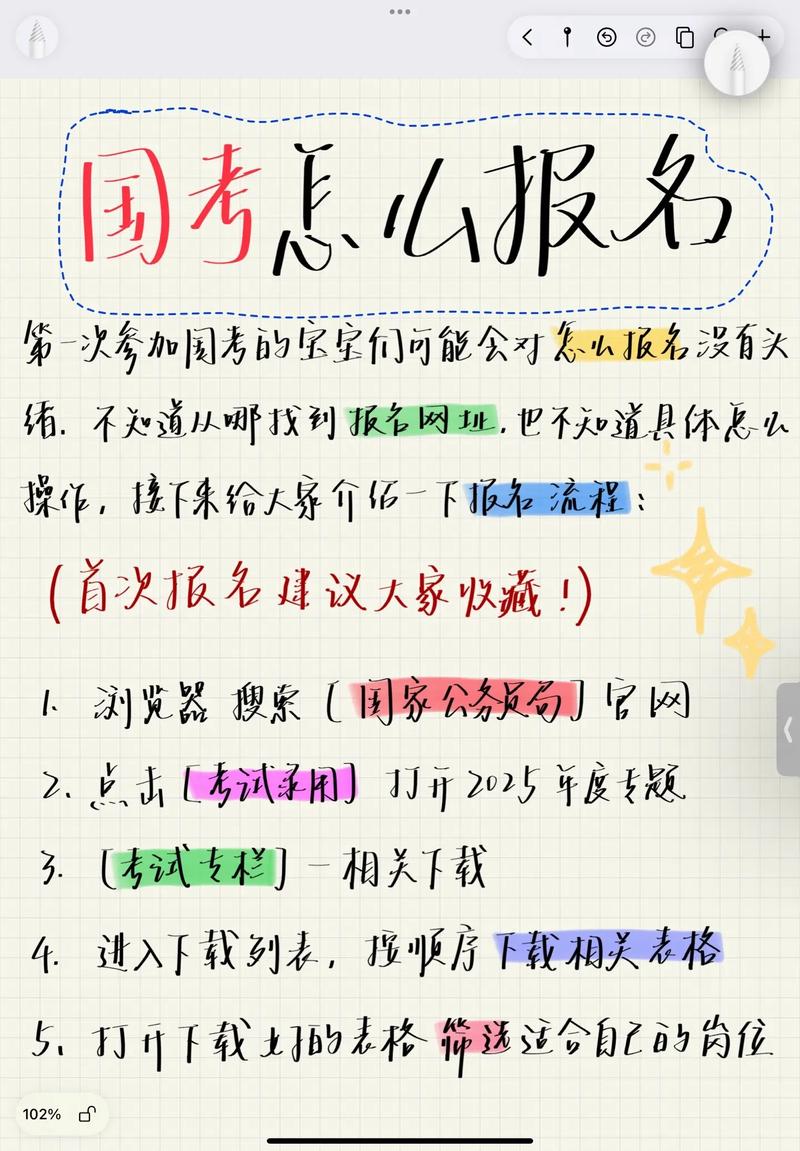 国考怎么报名
第一次参加国考的宝宝们可能会对怎么报名没有头
绪. 不知道从哪找到报名网址,也不知道具体怎么
操作,接下来给大家介绍一下报名流程:
(首次报名建议大家收藏!)
1. 浏览器 搜索[国家公务员局]官网
2. 点击[考试录用] 打开2025年度专题
3. [考试专栏]一相关下载
4. 进入下载列表,按顺序下载相关表格
5. 打开下载好的表格 筛选适合自己的岗位
102%